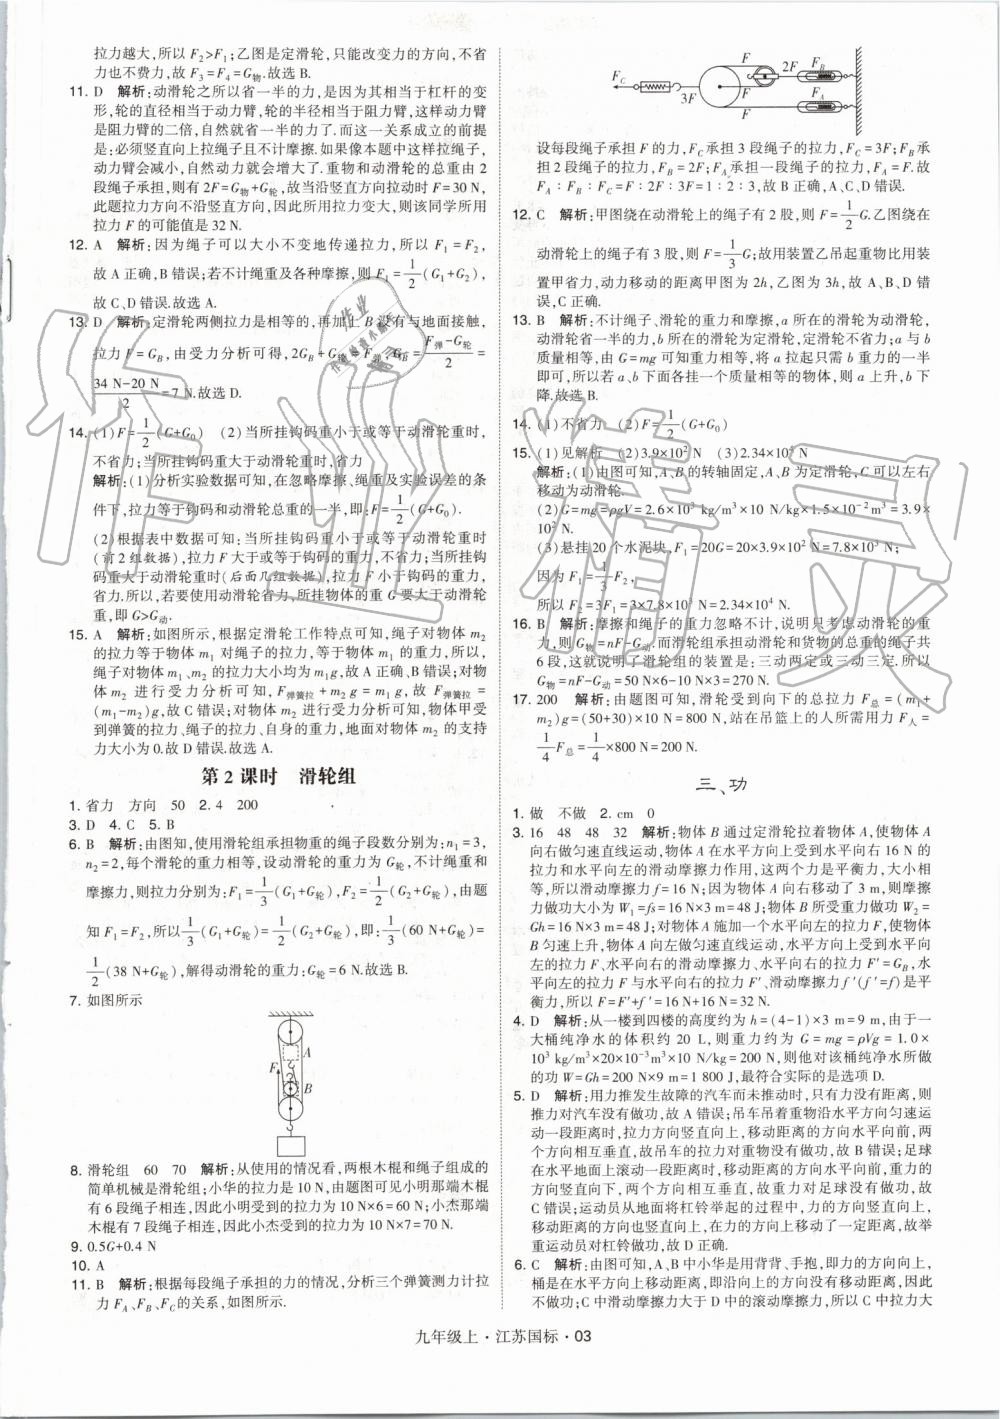 拉力越大,所以 F₂>F₁;乙图是定滑轮,只能改变力的方向,不省
力也不费力,故 F₃=F₄=G物.故选 B.
11. D 解析:动滑轮之所以省一半的力,是因为其相当于杠杆的变
形,轮的直径相当于动力臂,轮的半径相当于阻力臂,这样动力臂
是阻力臂的二倍,自然就省一半的力了.而这一关系成立的前提
是:必须竖直向上拉绳子且不计摩擦.如果像本题中这样拉绳子,
动力臂会减小,自然动力就会增大了.重物和动滑轮的总重由 2
段绳子承担,则有 2F=G物+G轮,故当沿竖直方向拉动时 F=30 N,
此题拉力方向不沿竖直方向,因此所用拉力变大,则该同学所用
拉力 F 的可能值是 32 N.
12. A 解析:因为绳子可以大小不变地传递拉力,所以 F₁=F₂,
故 A 正确,B 错误;若不计绳重及各种摩擦,则 F₁=1/2(G₁+G₂),
故 C、D 错误.故选 A.
13. D 解析:定滑轮两侧拉力是相等的,再加上 B 没有与地面接触,
拉力 F=G_B,由受力分析可得,2G_B+G轮=F弹,G_B=(F弹-G轮)/2=
(34 N-20 N)/2=7 N.故选 D.
14. (1)F=1/2(G+G₀) (2)当所挂钩码重小于或等于动滑轮重时,
不省力;当所挂钩码重大于动滑轮重时,省力
解析:(1)分析实验数据可知,在忽略摩擦、绳重及实验误差的条
件下,拉力等于钩码和动滑轮总重的一半,即:F=1/2(G+G₀).
(2)根据表中数据可知:当所挂钩码重小于或等于动滑轮重时
(前2组数据),拉力 F 大于或等于钩码的重力,不省力;当所挂钩
码重大于动滑轮重时(后面几组数据),拉力 F 小于钩码的重力,
省力.所以,若要使用动滑轮省力,所挂物体的重 G 要大于动滑轮
重,即 G>G动.
15. A 解析:如图所示,根据定滑轮工作特点可知,绳子对物体 m₂
的拉力等于物体 m₁ 对绳子的拉力,等于物体 m₁ 的重力,所以,
绳子对物体 m₁、m₂ 的拉力大小均为 m₁g,故 A 正确、B 错误;对物
体 m₂ 进行受力分析可知,F弹簧拉+m₂g=m₁g,故 F弹簧拉=
(m₁-m₂)g,故 C 错误;对物体 m₂ 进行受力分析可知,物体甲受
到弹簧的拉力、绳子的拉力、自身的重力,地面对物体 m₂ 的支持
力大小为0.故 D 错误.故选 A.
第2课时 滑轮组
1. 省力 方向 50 2. 4 200
3. D 4. C 5. B
6. B 解析:由图知,使用滑轮组承担物重的绳子段数分别为:n₁=3,
n₂=2,每个滑轮的重力相等,设动滑轮的重力为 G轮,不计绳重和
摩擦力,则拉力分别为:F₁=1/3(G₁+G轮),F₂=1/2(G₂+G轮),由题
知 F₁=F₂,所以1/3(G₁+G轮)=1/2(G₂+G轮),即:1/3(60 N+G轮)=
1/2(38 N+G轮),解得动滑轮的重力:G轮=6 N.故选 B.
7. 如图所示
A
F
B
8. 滑轮组 60 70 解析:从使用的情况看,两根木棍和绳子组成的
简单机械是滑轮组;小华的拉力是 10 N,由题图可见小明那端木棍
有 6 段绳子相连,因此小明受到的拉力为 10 N×6=60 N;小杰那端
木棍有 7 段绳子相连,因此小杰受到的拉力为 10 N×7=70 N.
9. 0.5G+0.4 N
10. A
11. B 解析:根据每段绳子承担的力的情况,分析三个弹簧测力计拉
力 F_A、F_B、F_C 的关系,如图所示.
F_C 3F F F F 2F F_B F_A
设每段绳子承担 F 的力,F_C 承担 3 段绳子的拉力,F_C=3F;F_B 承
担 2 段绳子的拉力,F_B=2F;F_A 承担一段绳子的拉力,F_A=F.故
F_A∶F_B∶F_C=F∶2F∶3F=1∶2∶3,故 B 正确,A、C、D 错误.
12. C 解析:甲图绕在动滑轮上的绳子有 2 股,则 F=1/2G.乙图绕在
动滑轮上的绳子有 3 股,则 F=1/3G;故用装置乙吊起重物比用装
置甲省力,动力移动的距离甲图为 2h,乙图为 3h,故 A、B、D 错
误,C 正确.
13. B 解析:不计绳子、滑轮的重力和摩擦,a 所在的滑轮为动滑轮,
动滑轮省一半的力,b 所在的滑轮为定滑轮,定滑轮不省力;a 与 b
质量相等,由 G=mg 可知重力相等,将 a 拉起只需 b 重力的一半
即可,所以若 a、b 下面各挂一个质量相等的物体,则 a 上升,b 下
降.故选 B.
14. (1)不省力 (2)F=1/2(G+G₀)
15. (1)见解析 (2)3.9×10² N (3)2.34×10⁴ N
解析:(1)由图可知,A、B 的转轴固定,A、B 为定滑轮,C 可以左右
移动为动滑轮.
(2)G=mg=ρgV=2.6×10³ kg/m³×10 N/kg×1.5×10⁻² m³=3.9×
10² N.
(3)悬挂 20 个水泥块,F₁=20G=20×3.9×10² N=7.8×10³ N;
因为 F₁=1/3F₂,
所以 F₂=3F₁=3×7.8×10³ N=2.34×10⁴ N.
16. B 解析:摩擦和绳子的重力忽略不计,说明只考虑动滑轮的重
力,则 G物=nF-G动.而滑轮组承担动滑轮和货物的总重的绳子共
6 段,这就说明了滑轮组的装置是:三动两定或三动三定.所以
G物=nF-G动=6×50 N-10 N×3=270 N.
17. 200 解析:由题图可知,滑轮受到向下的总拉力 F总=(m₁+
m₂)g=(50+30)×10 N=800 N,站在吊篮上的人所需用力 F人=
1/4F总=1/4×800 N=200 N.
三、功
1. 做 不做 2. cm 0
3. 16 48 48 32 解析:物体 B 通过定滑轮拉着物体 A,使物体 A
向右做匀速直线运动,物体 A 在水平方向上受到水平向右 16 N 的
拉力和水平向左的滑动摩擦力作用,这两个力是平衡力,大小相
等,所以滑动摩擦力 f=16 N;因为物体 A 向右移动了 3 m,则摩擦
力做功大小为 W₁=fs=16 N×3 m=48 J;物体 B 所受重力做功 W₂=
Gh=16 N×3 m=48 J;对物体 A 施加一个水平向左的拉力 F,使物体
B 匀速上升,物体 A 向左做匀速直线运动,水平方向上受到水平向
左的拉力 F、水平向右的滑动摩擦力、水平向右的拉力 F′=G_B,水平
向左的拉力 F 与水平向右的拉力 F′、滑动摩擦力 f′(f′=f)是平
衡力,所以 F=F′+f′=16 N+16 N=32 N.
4. D 解析:从一楼到四楼的高度约为 h=(4-1)×3 m=9 m,由于一
大桶纯净水的体积约 20 L,则重力约为 G=mg=ρVg=1.0×
10³ kg/m³×20×10⁻³ m³×10 N/kg=200 N,则他对该桶纯净水所做
的功 W=Gh=200 N×9 m=1 800 J,最符合实际的是选项 D.
5. D 解析:用力推发生故障的汽车而未推动时,只有力没有距离,则
推力对汽车没有做功,故 A 错误;吊车吊着重物沿水平方向匀速运
动一段距离时,拉力方向竖直向上,移动距离的方向水平向前,两
个方向相互垂直,故吊车的拉力对重物没有做功,故 B 错误;足球
在水平地面上滚动一段距离时,移动距离的方向水平向前,重力方
向竖直向下,两个方向相互垂直,故重力对足球没有做功,故
C 错误;运动员从地面将杠铃举起的过程中,力的方向竖直向上,
移动距离的方向也竖直向上,在力的方向上移动了一定距离,故举
重运动员对杠铃做功,故 D 正确.
6. C 解析:由图可知,A、B 中小华是用背背、手抱,即力的方向向上,
桶是在水平方向上移动距离,即沿向上的方向没有移动距离,因此
不做功;C 中滑动摩擦力大于 D 中的滚动摩擦力,所以 C 中拉力大
九年级上·江苏国标·03
作业精灵